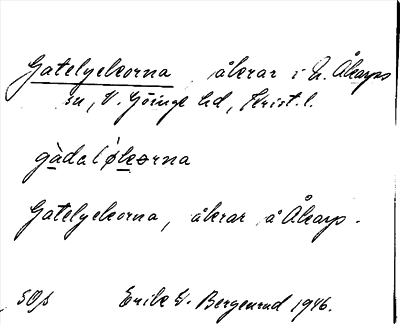 Gatelyekorna, åkrar i N. Åkarps
sn, V. Göinge hd, Krist. l.
gàdalök̲ɵrna
Gatelyekorna, åkrar å Åkarp.
50/s Erik W. Bergenrud 1946.